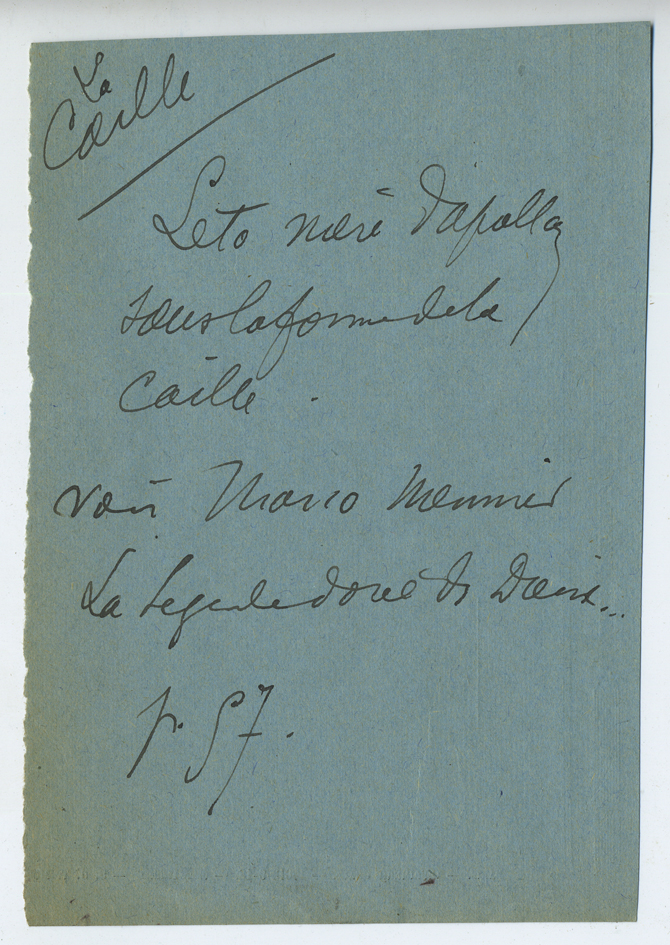 La
Caille
Leto mère d'Apollon
sous la forme de la
Caille.
voir Mario Meunier
La Légende dorée des Dieux...
p. 57.